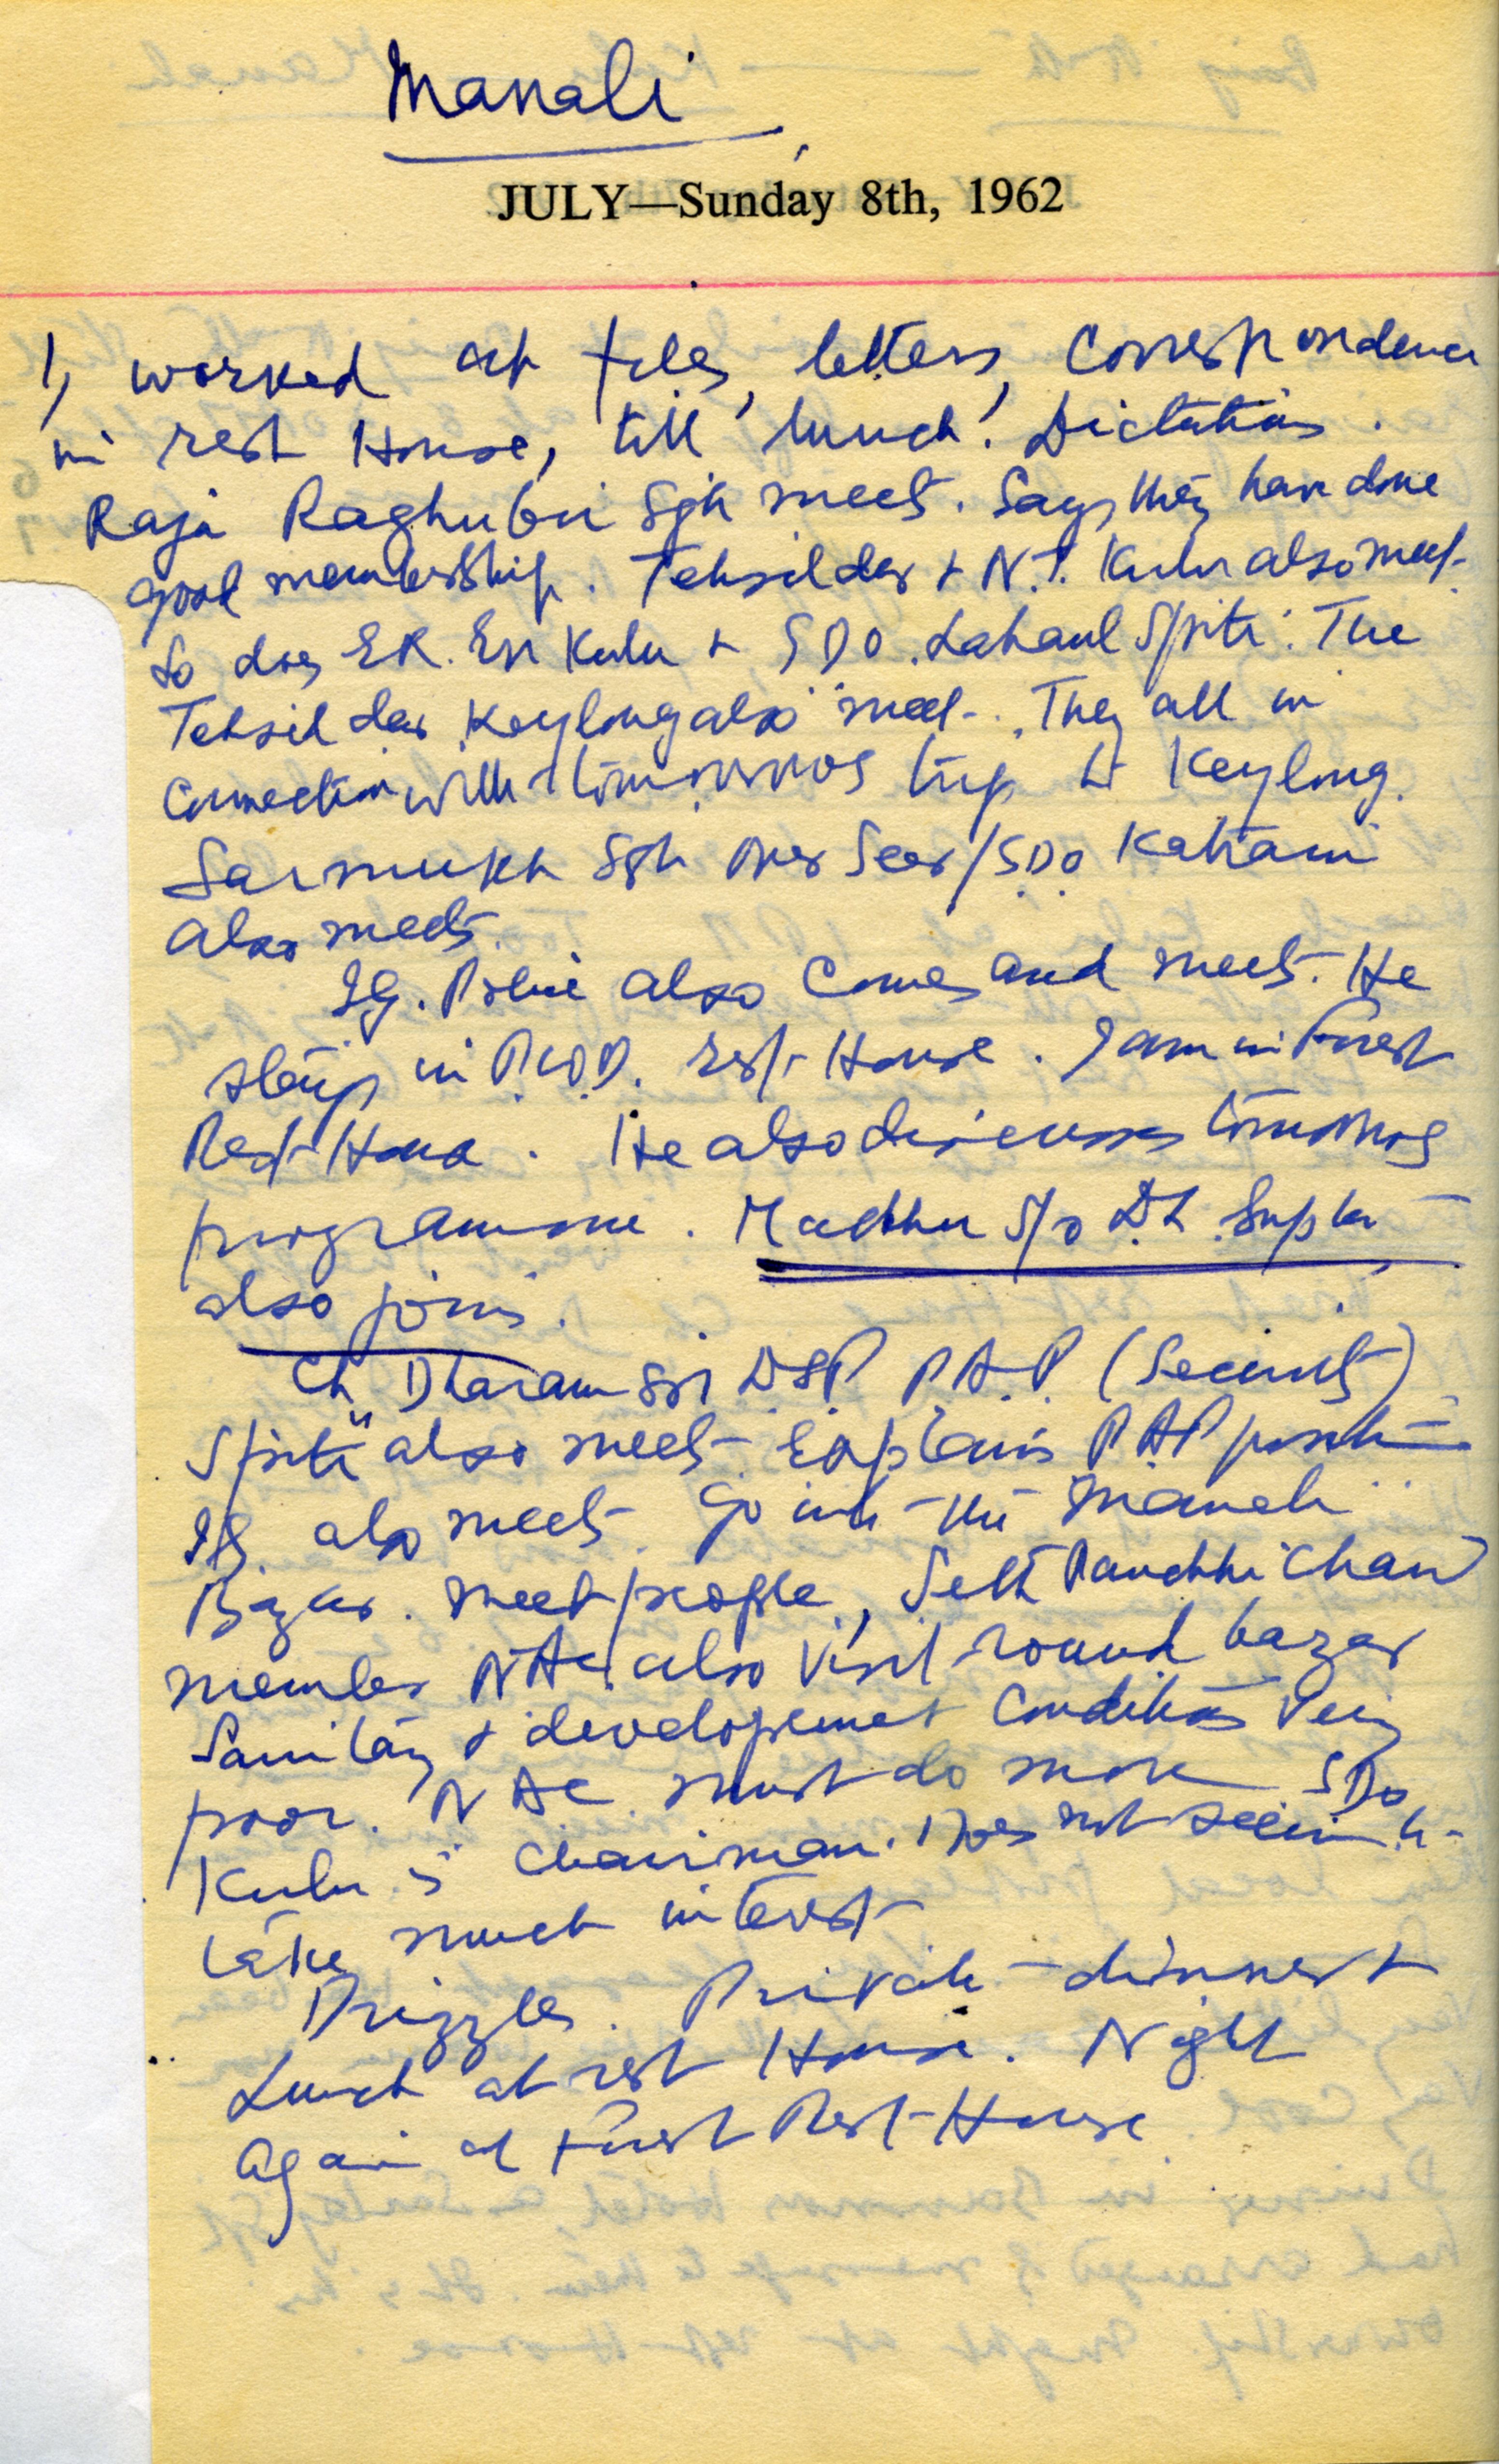 Manali
JULY—Sunday 8th, 1962
I, worked at files, letters, correspondence
in rest House, till lunch. Dictation.
Raja Raghubir Sgh meet. Says they have done
good membership. Tehsildar + N.T. Kulu also meet.
So does Kulu + SDO. Lahaul Spiti. The
Tehsildar Keylong also meet. They all in
connection with tomorrows trip to Keylong.
Sarmukh Sgh Over Seer/SDO Katrain
also meets.
IG. Police also comes and meets. He
stays in P.W.D. rest House. I am in Forest
Rest House. He also discusses tomorrows
programme. Madhu S/o D.L. Gupta
also joins.
Ch Dharam DSP P.A.P. (Security)
Spiti also meets explains PAP position
IG also meets. Go into the Manali
Bazar. Meet people, Seth Chand
member NAC also visit round bazar
Sanitary + developement conditions very
poor. NAC must do more SDO
Kulu is Chairman. Does not seem to
take much interest
Drizzles. Private dinner +
Lunch at rest House. Night
again at Forest Rest House